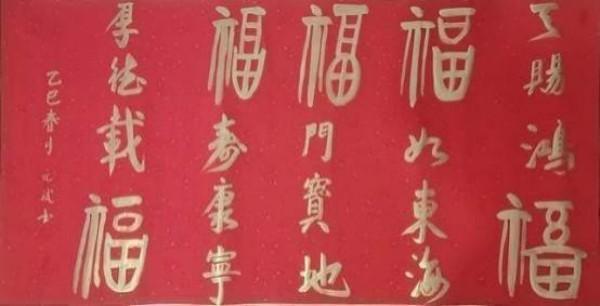 天賜鴻福
福如東海
福門寶地
福壽康寧
厚德載福
乙巳春月元成書